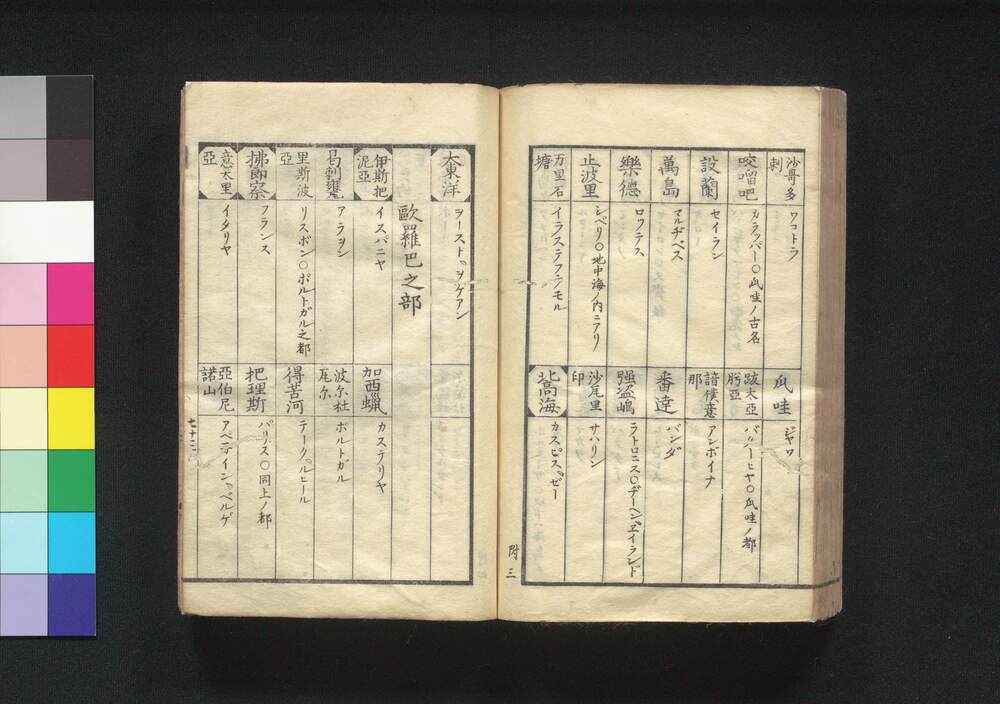 沙哥多剌 ワコトラ
爪哇 ジャワ
咬𠺕吧 カラッパー〇爪哇ノ古名
設蘭 セイラン
諳僕意那 アンボイナ
萬島 マルヂベス
番達 バンダ
樂德 ロッテス
强盗嶋 ラトロニス〇デーヘンヱイランド
止波里 シベリ〇地中海ノ内ニアリ
沙尾里印 サハリン
万里石塘
北高海 カスピス゚ゼー
附 三
大東洋 ヲースト゚ヲケアン
歐羅巴之部
伊斯把泥亞 イスパニヤ
加西蠟 カステリヤ
曷剌甕 アラヲン
波尓杜瓦尓 ポルトガル
里斯波亞 リスボン〇ポルトガル之都
得苦河 テーク゚ルヒール
拂郎察 フランス
把理斯 パリス〇同上ノ都
意太里亞 イタリヤ
亞伯尼諾山 アペニイン゚ベルゲ
七十二